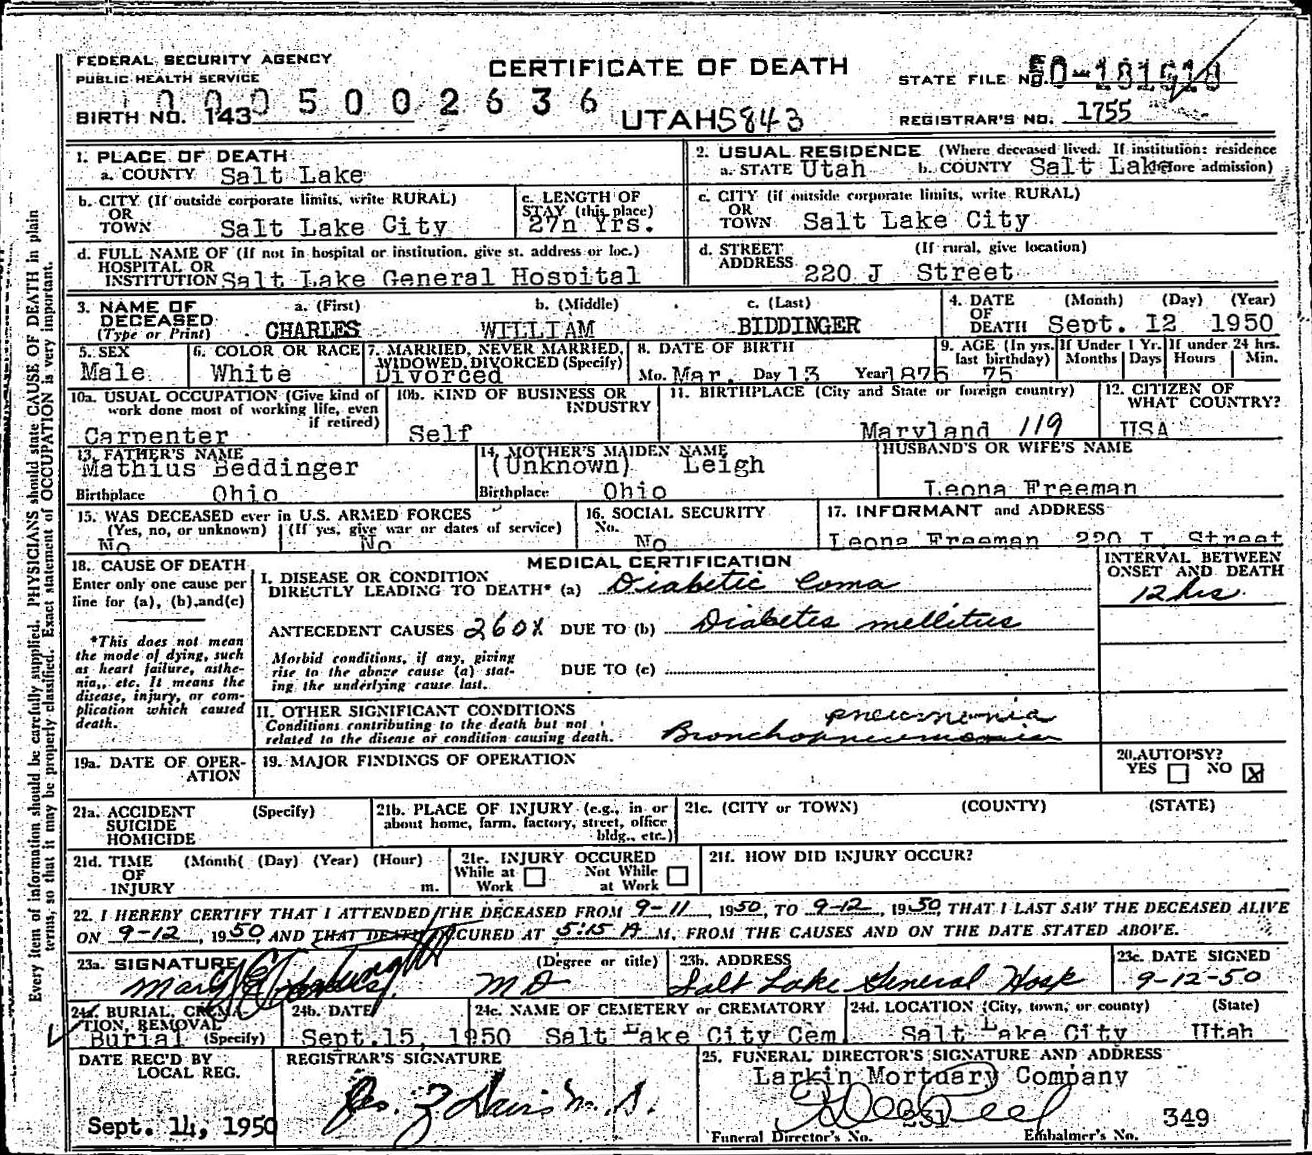 FEDERAL SECURITY AGENCY
PUBLIC HEALTH SERVICE
CERTIFICATE OF DEATH
STATE FILE NO.
0005002636
BIRTH NO. 143
UTAH 5843
REGISTRAR'S NO. 1755
1. PLACE OF DEATH
a. COUNTY Salt Lake
2. USUAL RESIDENCE (Where deceased lived. If institution: residence before admission)
a. STATE Utah b. COUNTY Salt Lake
b. CITY (If outside corporate limits, write RURAL)
OR
TOWN Salt Lake City
c. LENGTH OF
STAY (this place)
27n Yrs.
c. CITY (if outside corporate limits, write RURAL)
OR
TOWN Salt Lake City
d. FULL NAME OF (If not in hospital or institution, give st. address or loc.)
HOSPITAL OR
INSTITUTION Salt Lake General Hospital
d. STREET (If rural, give location)
ADDRESS 220 J Street
3. NAME OF DECEASED (Type or Print)
a. (First) b. (Middle) c. (Last)
CHARLES WILLIAM BIDDINGER
4. DATE OF DEATH (Month) (Day) (Year)
Sept. 12 1950
5. SEX
Male
6. COLOR OR RACE
White
7. MARRIED, NEVER MARRIED,
WIDOWED, DIVORCED (Specify)
Divorced
8. DATE OF BIRTH
Mo. Mar. Day 13 Year 1875
9. AGE (In yrs. last birthday) If Under 1 Yr. Months Days If under 24 hrs. Hours Min.
75
10a. USUAL OCCUPATION (Give kind of
work done most of working life, even
if retired)
Carpenter
10b. KIND OF BUSINESS OR
INDUSTRY
Self
11. BIRTHPLACE (City and State or foreign country)
Maryland 119
12. CITIZEN OF
WHAT COUNTRY?
USA
13. FATHER'S NAME
Mathius Beddinger
Birthplace Ohio
14. MOTHER'S MAIDEN NAME
(Unknown) Leigh
Birthplace Ohio
HUSBAND'S OR WIFE'S NAME
Leona Freeman
15. WAS DECEASED ever in U.S. ARMED FORCES
(Yes, no, or unknown) (If yes, give war or dates of service)
No No
16. SOCIAL SECURITY
No.
No
17. INFORMANT and ADDRESS
Leona Freeman 220 J. Street
18. CAUSE OF DEATH
Enter only one cause per
line for (a), (b), and (c)
*This does not mean
the mode of dying, such
as heart failure, asthe-
nia, etc. It means the
disease, injury, or com-
plication which caused
death.
MEDICAL CERTIFICATION
INTERVAL BETWEEN
ONSET AND DEATH
I. DISEASE OR CONDITION
DIRECTLY LEADING TO DEATH* (a) Diabetic Coma
12 hrs.
ANTECEDENT CAUSES 260X DUE TO (b) Diabetes mellitus
Morbid conditions, if any, giving
rise to the above cause (a) stat-
ing the underlying cause last.
DUE TO (c)
II. OTHER SIGNIFICANT CONDITIONS
Conditions contributing to the death but not
related to the disease or condition causing death.
pneumonia
Bronchopneumonia
19a. DATE OF OPER-
ATION
19. MAJOR FINDINGS OF OPERATION
20. AUTOPSY?
YES NO X
21a. ACCIDENT (Specify)
SUICIDE
HOMICIDE
21b. PLACE OF INJURY (e.g., in or
about home, farm, factory, street, office
bldg., etc.)
21c. (CITY or TOWN) (COUNTY) (STATE)
21d. TIME (Month( (Day) (Year) (Hour)
OF
INJURY m.
21e. INJURY OCCURED
While at Work Not While at Work
21f. HOW DID INJURY OCCUR?
22. I HEREBY CERTIFY THAT I ATTENDED THE DECEASED FROM 9-11, 1950, TO 9-12, 1950 THAT I LAST SAW THE DECEASED ALIVE
ON 9-12, 1950, AND THAT DEATH OCCURED AT 5:15 A M, FROM THE CAUSES AND ON THE DATE STATED ABOVE.
23a. SIGNATURE (Degree or title)
M D
23b. ADDRESS
Salt Lake General Hosp
23c. DATE SIGNED
9-12-50
24a. BURIAL, CREMA-
TION, REMOVAL
Burial (Specify)
24b. DATE
Sept. 15, 1950
24c. NAME OF CEMETERY or CREMATORY
Salt Lake City Cem.
24d. LOCATION (City, town, or county) (State)
Salt Lake City Utah
DATE REC'D BY
LOCAL REG.
Sept. 14, 1950
REGISTRAR'S SIGNATURE
25. FUNERAL DIRECTOR'S SIGNATURE AND ADDRESS
Larkin Mortuary Company
231 349
Funeral Director's No. Embalmer's No.
Every item of information should be carefully supplied. PHYSICIANS should state CAUSE OF DEATH in plain
terms, so that it may be properly classified. Exact statement of OCCUPATION is very important.